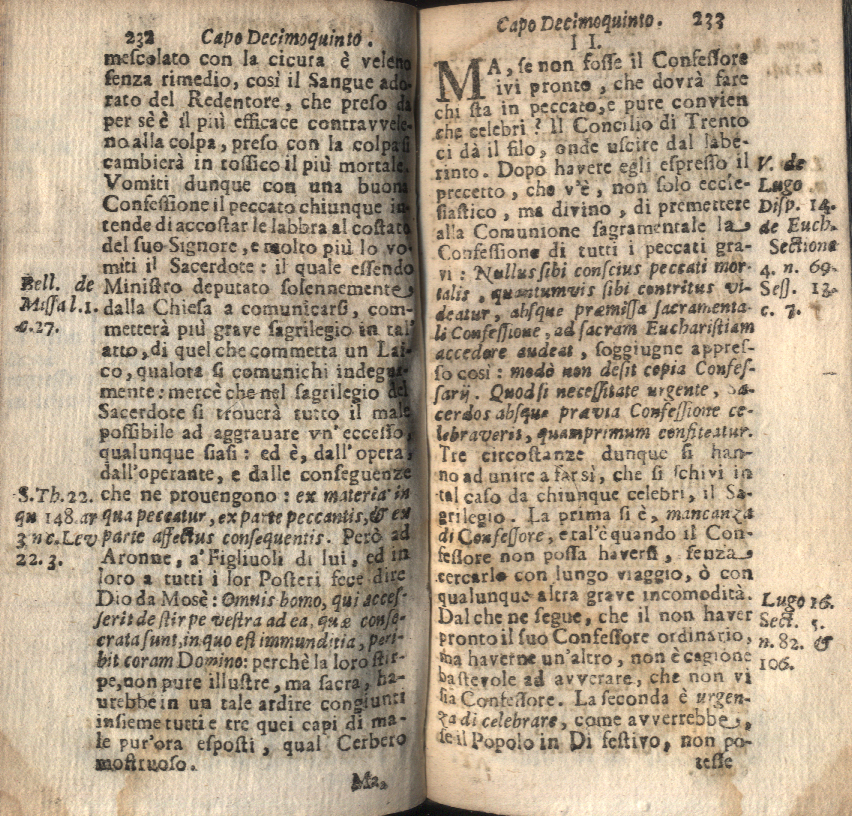 232 Capo Decimoquinto.
mescolato con la cicura è veleno
senza rimedio, così il Sangue ado-
rato del Redentore, che preso da
per sè è il più efficace contravvele-
no alla colpa, preso con la colpa si
cambierà in tossico il più mortale.
Vomiti dunque con una buona
Confessione il peccato chiunque in-
tende di accostar le labbra al costato
del suo Signore, e molto più lo vo-
miti il Sacerdote: il quale essendo
Ministro deputato solennemente
dalla Chiesa a comunicarsi, com-
metterà più grave sagrilegio in tal'
atto, di quel che commetta un Lai-
co, qualora si comunichi indegna-
mente: mercè che nel sagrilegio del
Sacerdote si trouerà tutto il male
possibile ad aggrauare vn'eccesso,
qualunque siasi: ed è, dall'opera,
dall'operante, e dalle conseguenze
che ne prouengono: ex materia in
qua peccatur, ex parte peccantis, & ex
parte affectus consequentis. Però ad
Aronne, a' Figliuoli di lui, ed in
loro a tutti i lor Posteri fece dire
Dio da Mosè: Omnis homo, qui acces-
serit de stirpe vestra ad ea, quæ conse-
crata sunt, in quo est immunditia, peri-
bit coram Domino: perchè la loro stir-
pe, non pure illustre, ma sacra, ha-
urebbe in un tale ardire congiunti
insieme tutti e tre quei capi di ma-
le pur'ora esposti, qual Cerbero
mostruoso.
Ma,
Bell. de
Missa l.1.
c.27.
S.Th.22.
qu 148.ar
3 nc.Lev
22.3.
Capo Decimoquinto. 233
II.
MA, se non fosse il Confessore
ivi pronto, che dovrà fare
chi sta in peccato, e pure convien
che celebri? Il Concilio di Trento
ci dà il filo, onde uscire dal labe-
rinto. Dopo havere egli espresso il
precetto, che v'è, non solo eccle-
siastico, ma divino, di premettere
alla Comunione sagramentale la
Confessione di tutti i peccati gra-
vi: Nullus sibi conscius peccati mor-
talis, quantumvis sibi contritus vi-
deatur, absque præmissa sacramenta-
li Confessione, ad sacram Eucharistiam
accedere audeat, soggiugne appres-
so così: modò non desit copia Confes-
sarij. Quod si necessitate urgente, Sa-
cerdos absque prævia Confessione ce-
lebraverit, quamprimum confiteatur.
Tre circostanze dunque si han-
no ad unire a farsì, che si schivi in
tal caso da chiunque celebri, il Sa-
grilegio. La prima si è, mancanza
di Confessore, e tal'è quando il Con-
fessore non possa haversi, senza
cercarlo con lungo viaggio, ò con
qualunque altra grave incomodità.
Dal che ne segue, che il non haver
pronto il suo Confessore ordinario,
ma haverne un'altro, non è cagione
bastevole ad avverare, che non vi
sia Confessore. La seconda è urgen-
za di celebrare, come avverrebbe,
se il Popolo in Di festivo, non po-
tesse
V. de
Lugo
Disp. 14.
de Euch.
Sectione
4. n. 69.
Sess. 13.
c. 7.
Lugo 16.
Sect. 5.
n. 82. &
106.